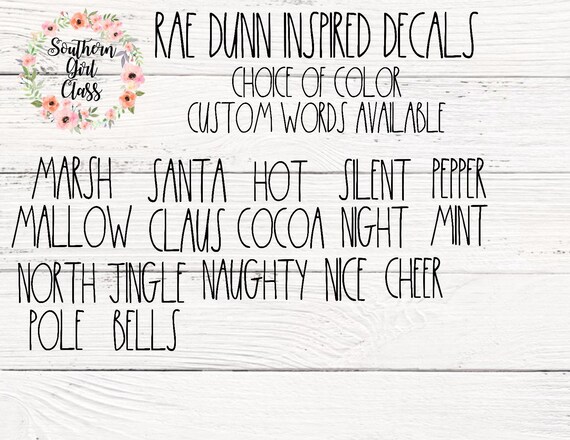 Southern
Girl
Class
RAE DUNN INSPIRED DECALS
CHOICE OF COLOR
CUSTOM WORDS AVAILABLE
MARSH SANTA HOT SILENT PEPPER
MALLOW CLAUS COCOA NIGHT MINT
NORTH JINGLE NAUGHTY NICE CHEER
POLE BELLS